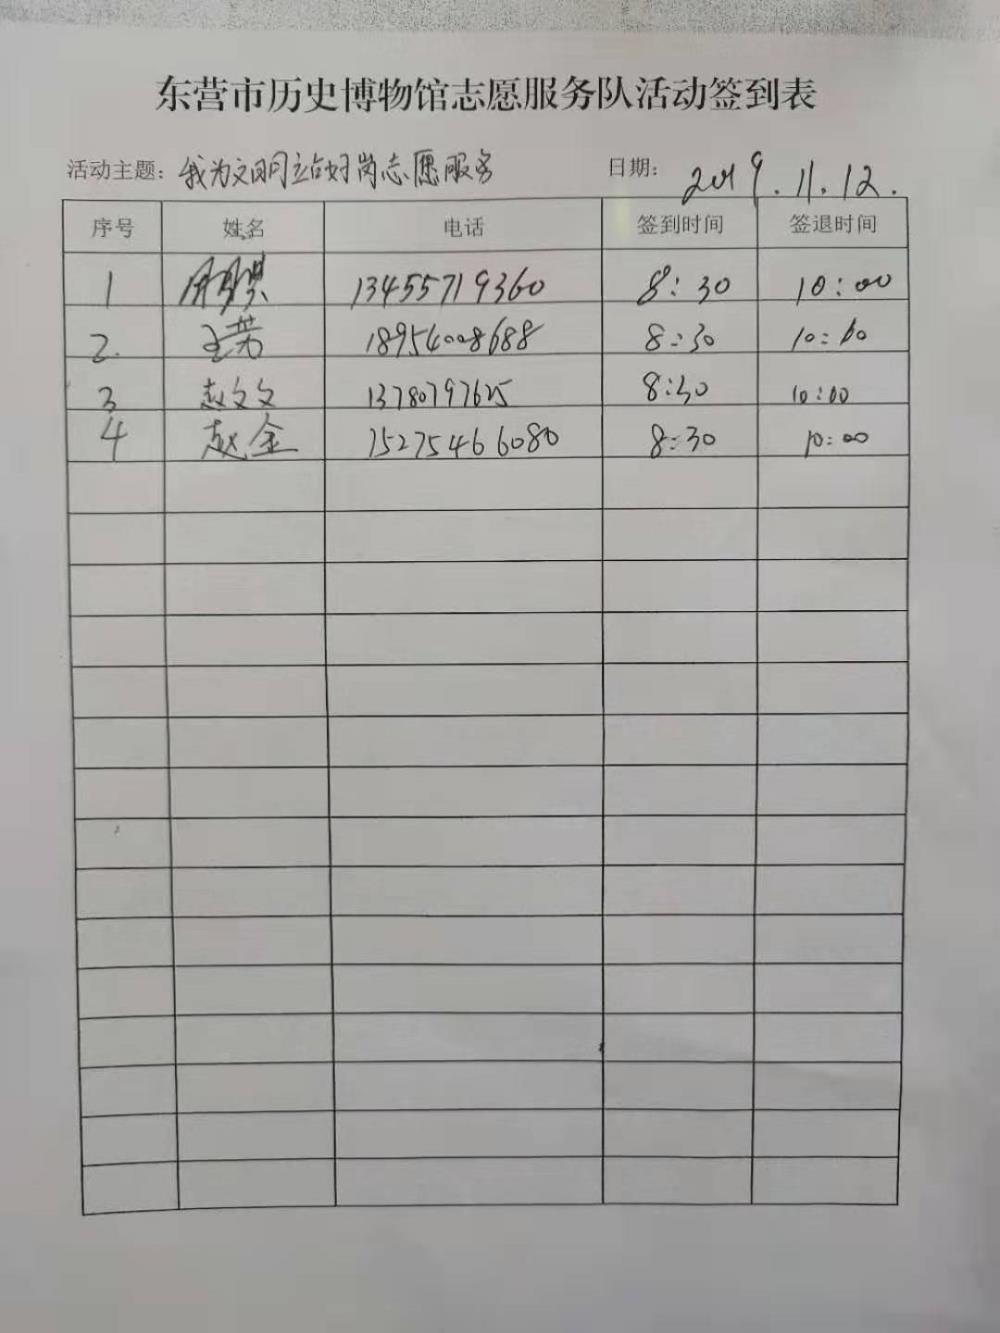 东营市历史博物馆志愿服务队活动签到表
活动主题：我为文明站好岗志愿服务 日期：2019.11.12.
序号 姓名 电话 签到时间 签退时间
1 13455719360 8:30 10:00
2. 王芳 18954008688 8:30 10:00
3 赵文文 13780797625 8:30 10:00
4 赵金 15275466080 8:30 10:00